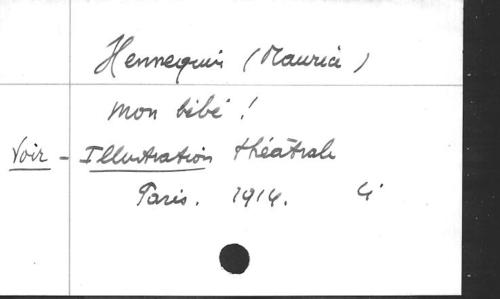 Hennequin (Maurice)
Mon bébé !
Voir - Illustration théâtrale
Paris. 1914. 4°